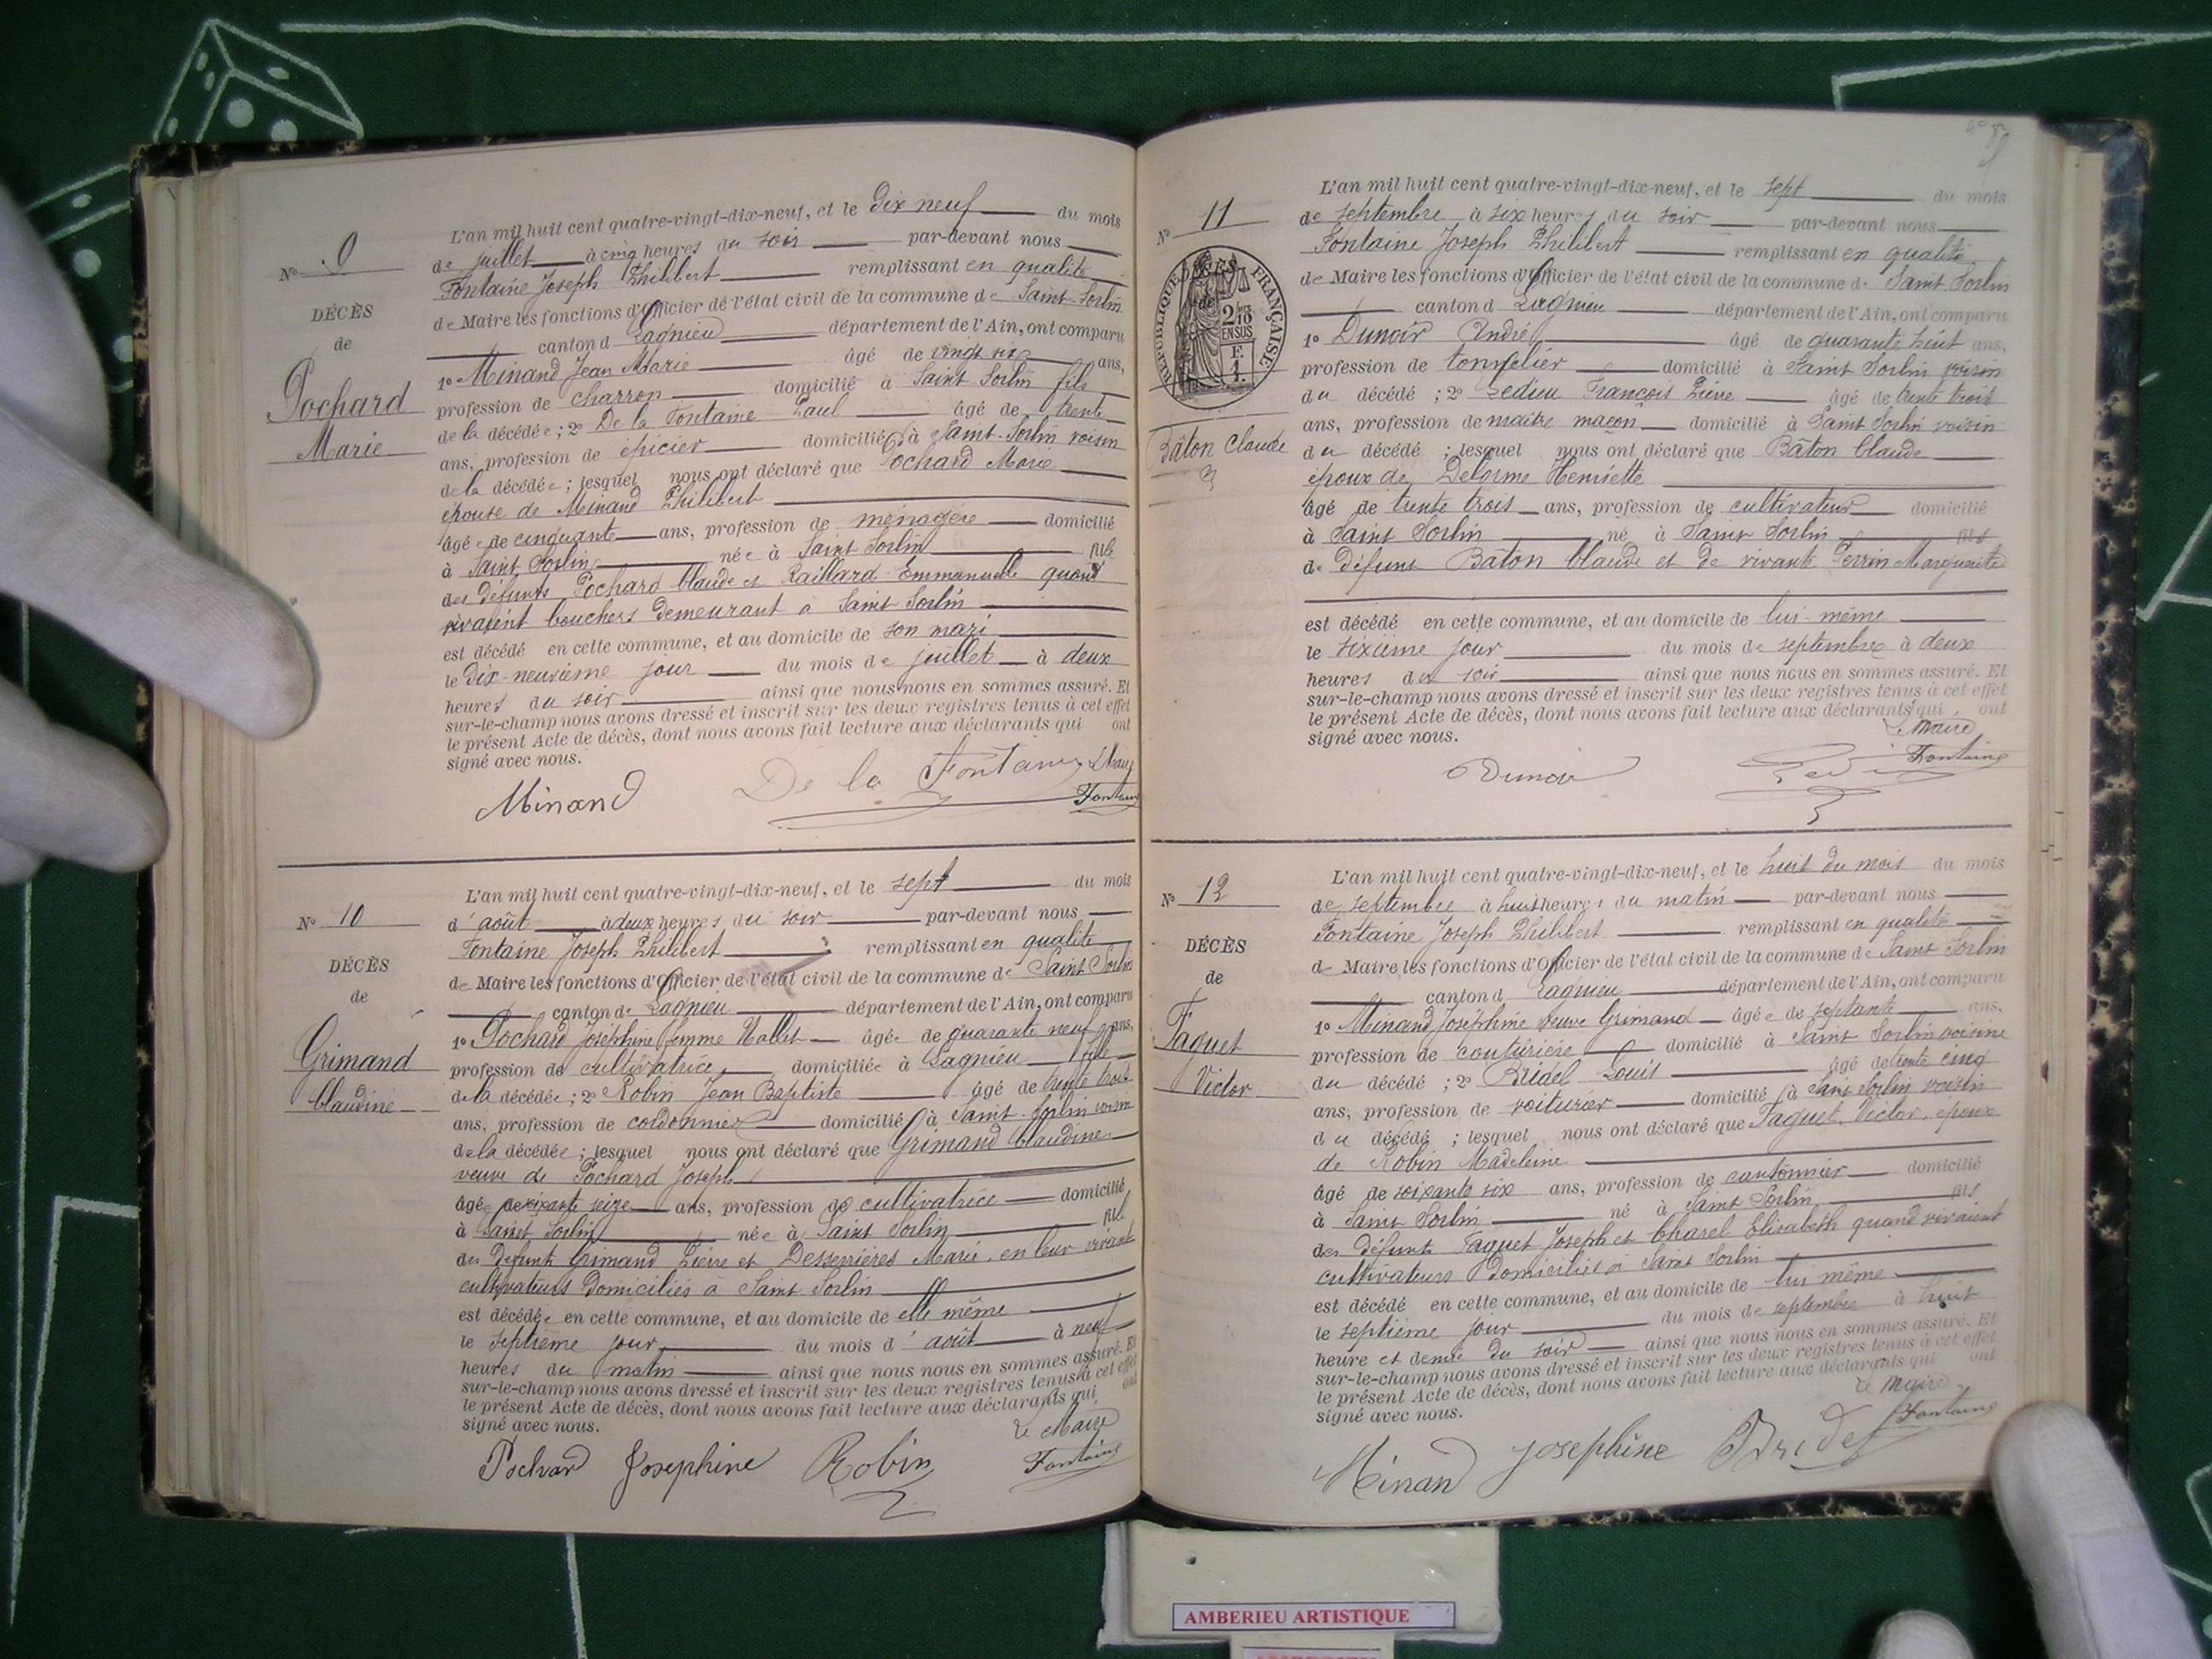 L'an mil huit cent quatre-vingt-dix-neuf, et le dix neuf du mois
de juillet à cinq heures du soir par-devant nous
Fontaine Joseph Philibert remplissant en qualité
de Maire les fonctions d'Officier de l'état civil de la commune de Saint-Sorlin
canton d Lagnieu département de l'Ain, ont comparu
1º Minand Jean Marie âgé de vingt six ans,
profession de charron domicilié à Saint Sorlin fils
de la décédée ; 2º De la Fontaine Paul âgé de trente
ans, profession de épicier domicilié à Saint-Sorlin voisin
de la décédée ; lesquel nous ont déclaré que Pochard Marie
épouse de Minand Philibert
âgée de cinquante ans, profession de ménagère domicilié
à Saint Sorlin née à Saint Sorlin fille
des défunts Pochard Claude et Raillard Emmanuelle quand
vivaient bouchers demeurant à Saint Sorlin
est décédé en cette commune, et au domicile de son mari
le dix-neuvième jour du mois de juillet à deux
heures du soir ainsi que nous nous en sommes assuré. Et
sur-le-champ nous avons dressé et inscrit sur les deux registres tenus à cet effet
le présent Acte de décès, dont nous avons fait lecture aux déclarants qui ont
signé avec nous.
Minand De la Fontaine
Fontaine
Nº 9
DÉCÈS
de
Pochard
Marie
L'an mil huit cent quatre-vingt-dix-neuf, et le sept du mois
d'août à deux heures du soir par-devant nous
Fontaine Joseph Philibert remplissant en qualité
de Maire les fonctions d'Officier de l'état civil de la commune de Saint Sorlin
canton de Lagnieu département de l'Ain, ont comparu
1º Pochard Joséphine femme Mallet âgée de quarante neuf ans,
profession de cultivatrice domiciliée à Lagnieu fille
de la décédée ; 2º Robin Jean Baptiste âgé de trente trois
ans, profession de cordonnier domicilié à Saint-Sorlin voisin
de la décédée ; lesquel nous ont déclaré que Grimand Claudine
veuve de Pochard Joseph
âgée de soixante seize ans, profession de cultivatrice domicilié
à Saint Sorlin née à Saint Sorlin fille
des défunts Grimand Pierre et Desserrières Marie, en leur vivant
cultivateurs domiciliés à Saint Sorlin
est décédée en cette commune, et au domicile de elle même
le septième jour du mois d'août à neuf
heures du matin ainsi que nous nous en sommes assuré. Et
sur-le-champ nous avons dressé et inscrit sur les deux registres tenus à cet effet
le présent Acte de décès, dont nous avons fait lecture aux déclarants qui ont
signé avec nous.
Le Maire
Pochard Josephine Robin Fontaine
Nº 10
DÉCÈS
de
Grimand
Claudine
L'an mil huit cent quatre-vingt-dix-neuf, et le sept du mois
de septembre à six heures du soir par-devant nous
Fontaine Joseph Philibert remplissant en qualité
de Maire les fonctions d'Officier de l'état civil de la commune de Saint Sorlin
canton d Lagnieu département de l'Ain, ont comparu
1º Dunoir André âgé de quarante huit ans,
profession de tonnelier domicilié à Saint Sorlin voisin
du décédé ; 2º Ledieu François Pierre âgé de trente trois
ans, profession de maître maçon domicilié à Saint Sorlin voisin
du décédé ; lesquel nous ont déclaré que Bâton Claude
époux de Delorme Henriette
âgé de trente trois ans, profession de cultivateur domicilié
à Saint Sorlin né à Saint Sorlin fils
de défunt Baton Claude et de vivante Perrin Marguerite
est décédé en cette commune, et au domicile de lui-même
le sixième jour du mois de septembre à deux
heures du soir ainsi que nous nous en sommes assuré. Et
sur-le-champ nous avons dressé et inscrit sur les deux registres tenus à cet effet
le présent Acte de décès, dont nous avons fait lecture aux déclarants qui ont
signé avec nous.
Le Maire
Dunoir Fontaine
Nº 11
RÉPUBLIQUE FRANÇAISE
2/10
EN SUS
F.
1.
Bâton Claude
L'an mil huit cent quatre-vingt-dix-neuf, et le huit du mois du mois
de septembre à huit heures du matin par-devant nous
Fontaine Joseph Philibert remplissant en qualité
de Maire les fonctions d'Officier de l'état civil de la commune de Saint Sorlin
canton d Lagnieu département de l'Ain, ont comparu
1º Minand Joséphine veuve Grimand âgée de septante ans,
profession de couturière domicilié à Saint Sorlin voisine
du décédé ; 2º Bridel Louis âgé de trente cinq
ans, profession de voiturier domicilié à Saint Sorlin voisin
du décédé ; lesquel nous ont déclaré que Faguet Victor, époux
de Robin Madeleine
âgé de soixante six ans, profession de cantonnier domicilié
à Saint Sorlin né à Saint Sorlin fils
des défunts Faguet Joseph et Charel Elisabeth quand vivaient
cultivateurs domiciliés à Saint Sorlin
est décédé en cette commune, et au domicile de lui même
le septième jour du mois de septembre à huit
heure et demie du soir ainsi que nous nous en sommes assuré. Et
sur-le-champ nous avons dressé et inscrit sur les deux registres tenus à cet effet
le présent Acte de décès, dont nous avons fait lecture aux déclarants qui ont
signé avec nous.
Le Maire
Minand Josephine Bridel Fontaine
Nº 12
DÉCÈS
de
Faguet
Victor
AMBERIEU ARTISTIQUE